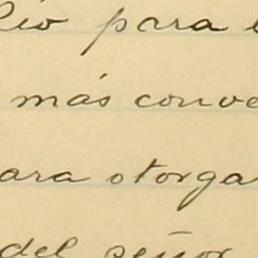 para
más conve
ara otorga
del señor